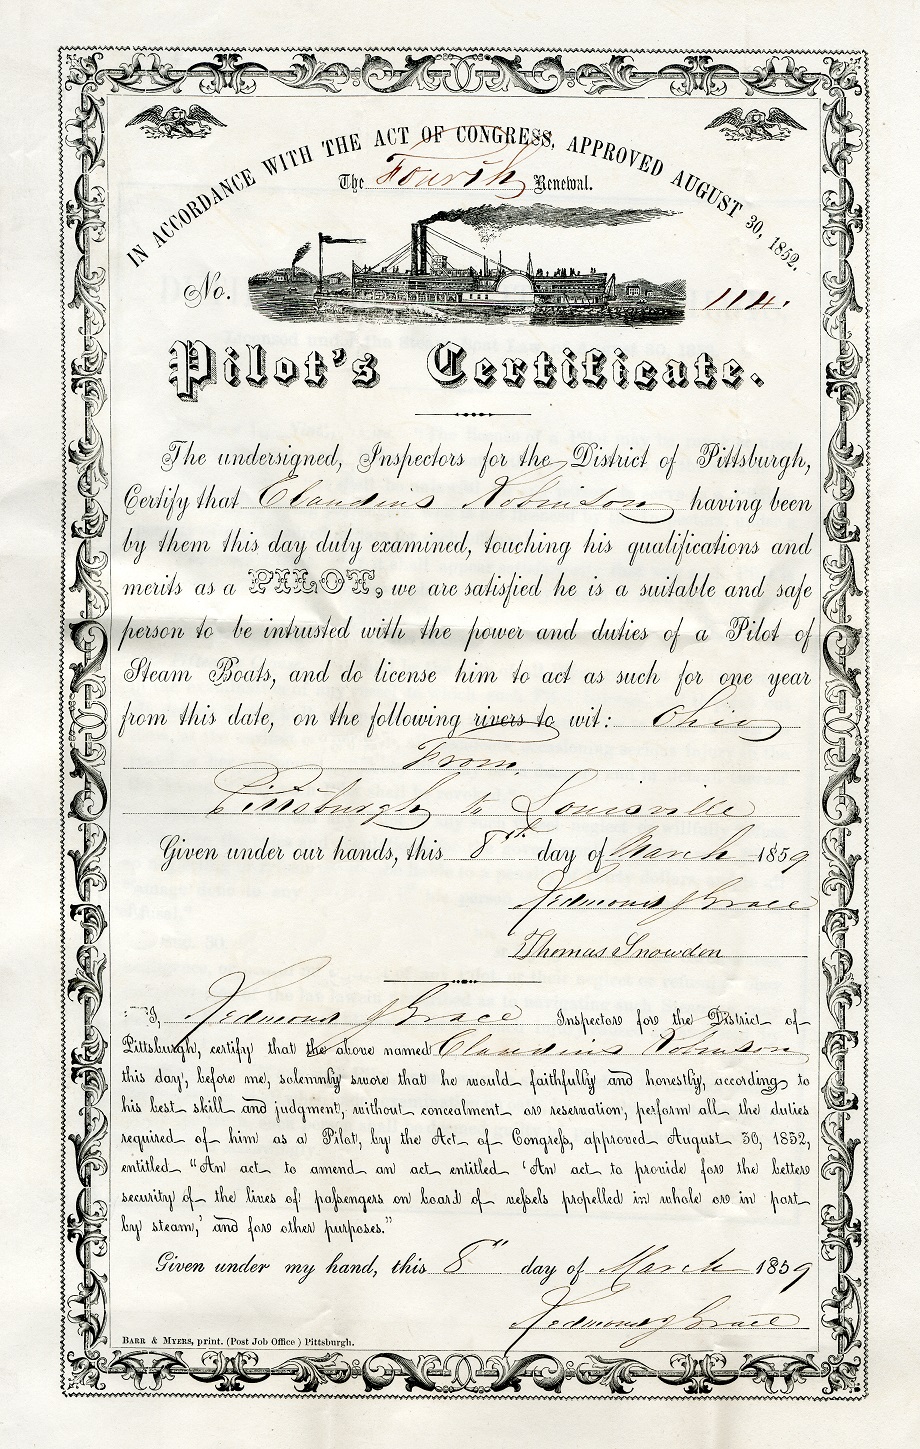 IN ACCORDANCE WITH THE ACT OF CONGRESS, APPROVED AUGUST 30, 1852.
The Fourth Renewal.
No. 114.
Pilot's Certificate.
The undersigned, Inspectors for the District of Pittsburgh,
Certify that Claudius Robinson having been
by them this day duly examined, touching his qualifications and
merits as a PILOT, we are satisfied he is a suitable and safe
person to be intrusted with the power and duties of a Pilot of
Steam Boats, and do license him to act as such for one year
from this date, on the following rivers to wit: Ohio
From
Pittsburgh to Louisville
Given under our hands, this 8th day of March 1859
Redmond J Grace
Thomas Snowden
I, Redmond J Grace Inspector for the District of
Pittsburgh, certify that the above named Claudius Robinson
this day, before me, solemnly swore that he would faithfully and honestly, according to
his best skill and judgment, without concealment or reservation, perform all the duties
required of him as a Pilot, by the Act of Congreſs, approved August 30, 1852,
entitled "An act to amend an act entitled 'An act to provide for the better
security of the lives of paſsengers on board of veſsels propelled in whole or in part
by steam,' and for other purposes."
Given under my hand, this 8th day of March 1859
Redmond J Grace
BARR & MYERS, print. (Post Job Office) Pittsburgh.